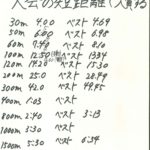 大会の短距離(大賞)
30m 4.00 ベスト 4.69
50m 6.00 ベスト 6.98
60m 7.40 ベスト 8.10
100m 12.50 ベスト 13.54
120m 14.20 ベスト 15.30
200m 25.0 ベスト 28.79
300m 42.0 ベスト 49.45
400m 1:03 ベスト
800m 2:40 ベスト 3:13
1000m 3:30 ベスト
1500m 5:30 ベスト 6:34